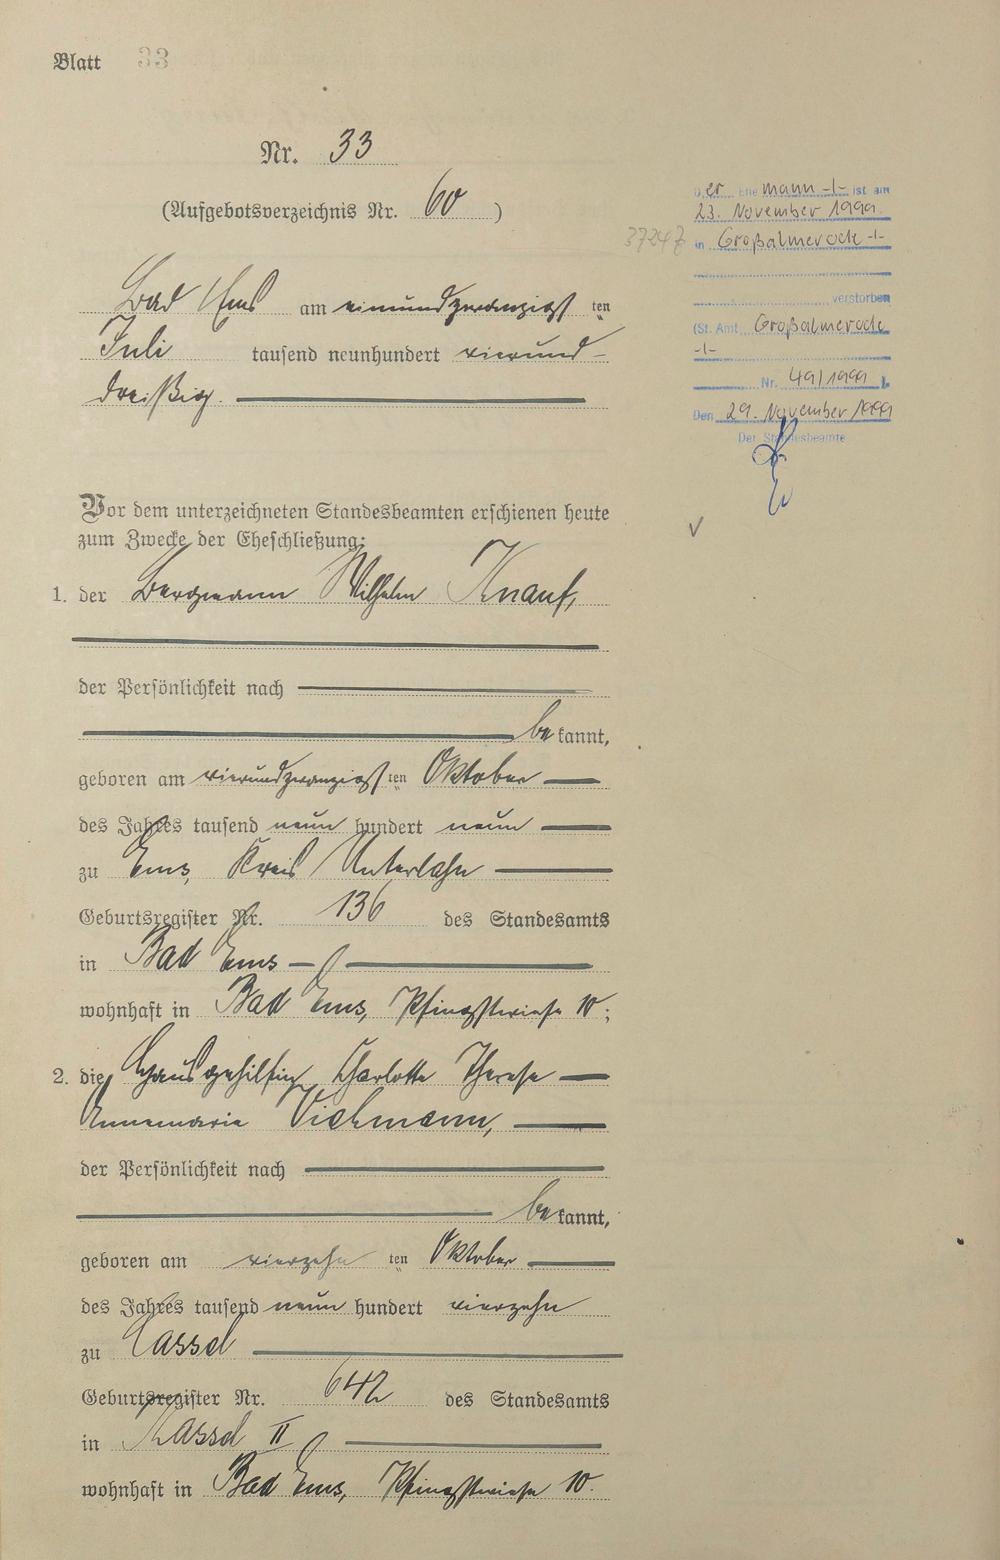 Blatt 33
Nr. 33
(Aufgebotsverzeichnis Nr. 60)
Bad Ems am einundzwanzigsten
Juli tausend neunhundert vierund-
dreißig.
Vor dem unterzeichneten Standesbeamten erschienen heute
zum Zwecke der Eheschließung:
1. der Bergmann Wilhelm Knauf,
der Persönlichkeit nach
bekannt,
geboren am vierundzwanzigsten Oktober
des Jahres tausend neun hundert neun
zu Ems, Kreis Unterlahn
Geburtsregister Nr. 136 des Standesamts
in Bad Ems
wohnhaft in Bad Ems, Pfingstwiese 10;
2. die Hausgehilfin Charlotte Therese
Annemarie Vickmann,
der Persönlichkeit nach
bekannt,
geboren am vierzehnten Oktober
des Jahres tausend neun hundert vierzehn
zu Cassel
Geburtsregister Nr. 642 des Standesamts
in Kassel II
wohnhaft in Bad Ems, Pfingstwiese 10.
Der Ehemann -/- ist am
23. November 1999
37247
in Großalmerode -/-
verstorben
(St. Amt Großalmerode
-/-
Nr. 49/1999 ).
Den 29. November 1999
Der Standesbeamte